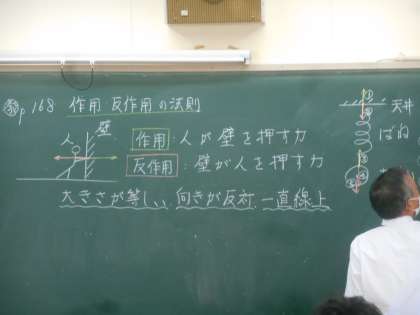 教 p168 作用・反作用の法則
人 壁
作用:人が壁を押す力
反作用:壁が人を押す力
大きさが等しい、向きが反対、一直線上
天井
ばね